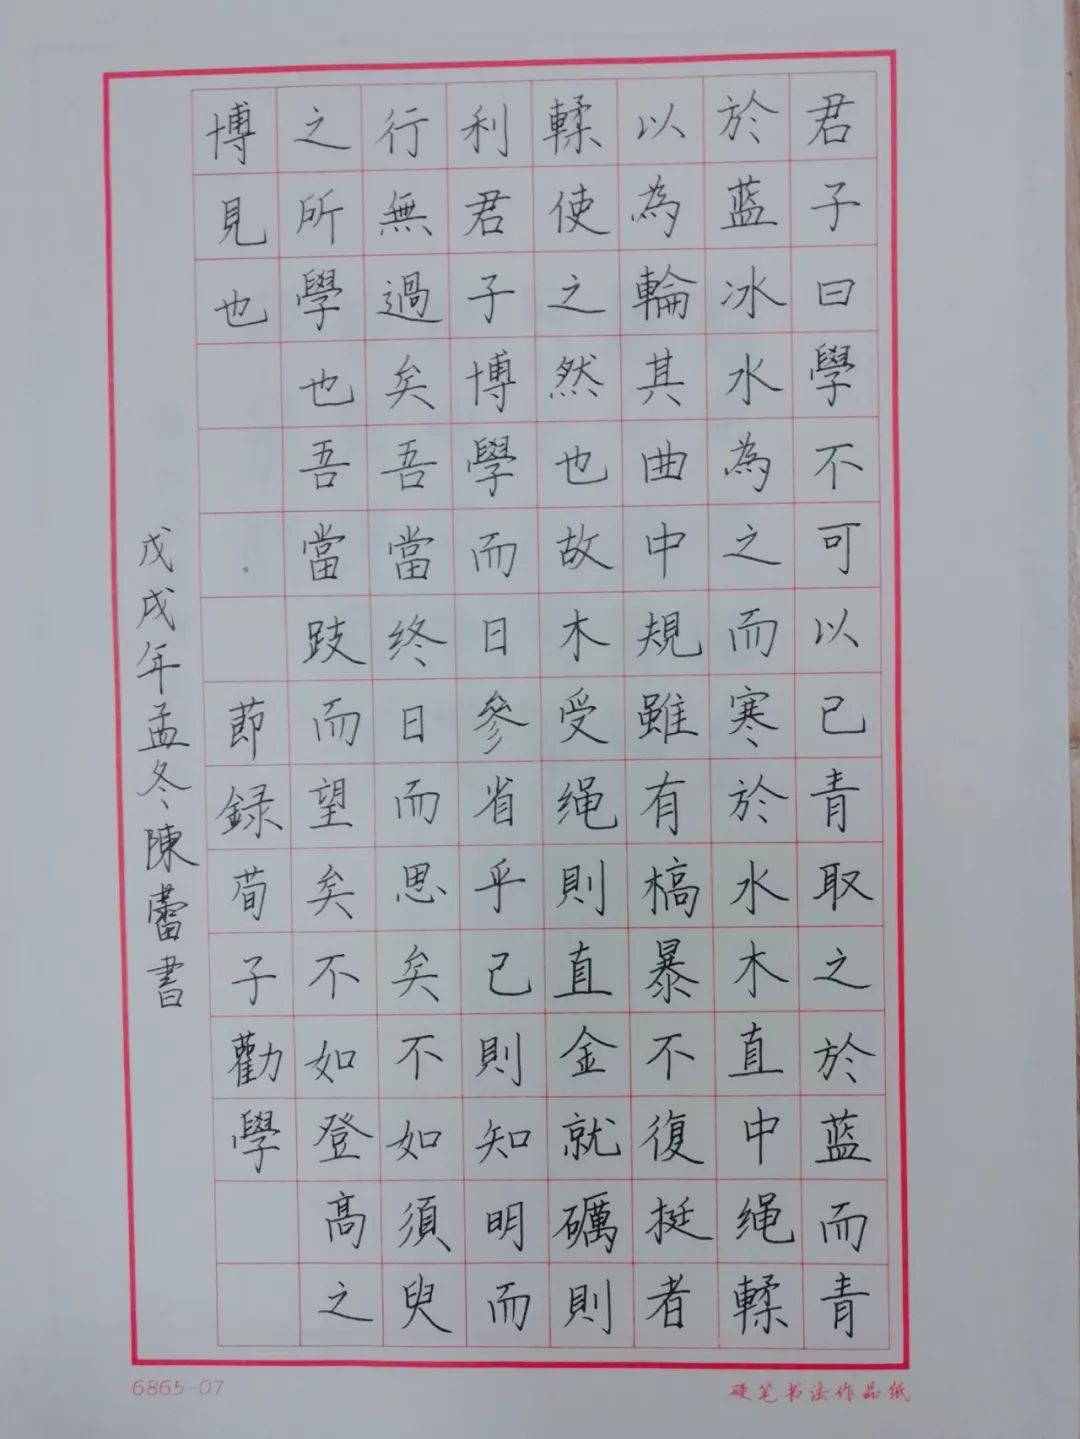 君子曰學不可以已青取之於蓝而青
於蓝冰水為之而寒於水木直中绳輮
以為輪其曲中規雖有槁暴不復挺者
輮使之然也故木受绳則直金就礪則
利君子博學而日參省乎己則知明而
行無過矣吾當终日而思矣不如須臾
之所學也吾當跂而望矣不如登高之
博見也
節録荀子勸學
戊戌年孟冬陳蕾書
6865-07
硬笔书法作品纸